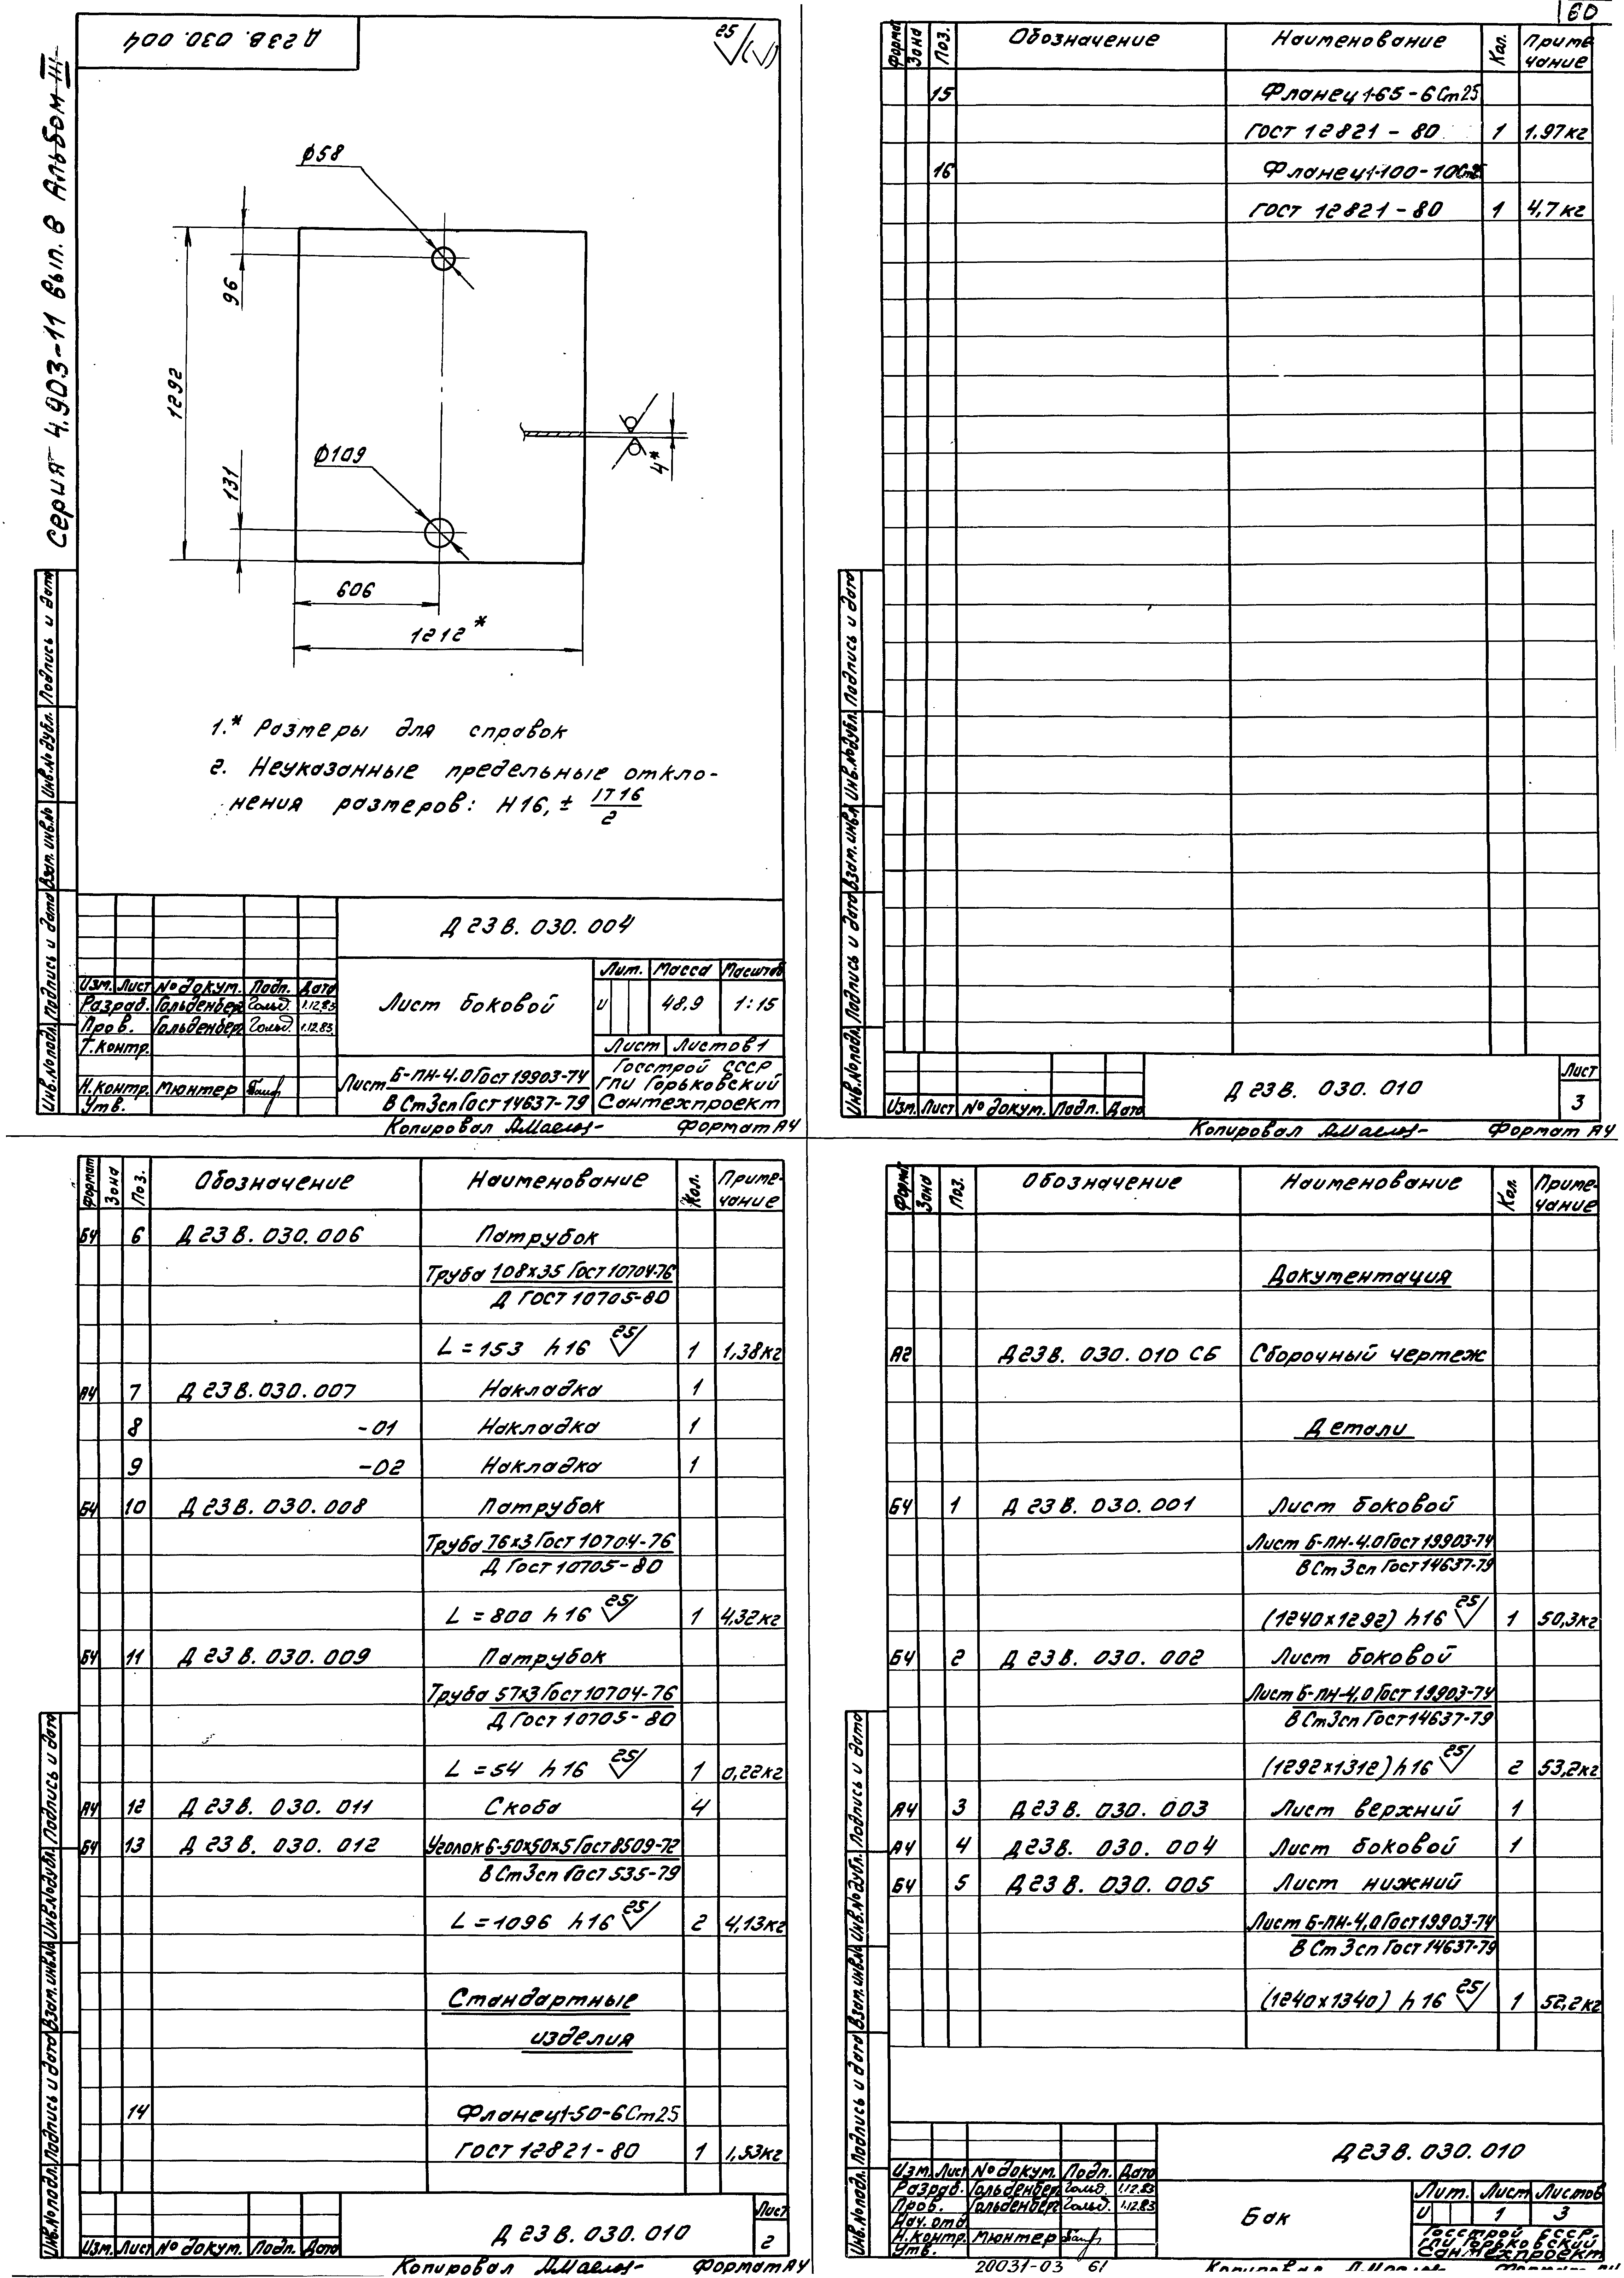 Серия 4.903-11 вып. 8 Альбом III
Д 23 В. 030. 004
25
Ø58
96
1292
Ø109
131
4*
606
1212*
1.* Размеры для справок
2. Неуказанные предельные откло-
нения размеров: H16, ± IT16/2
Инв.№подл. Подпись и дата Взам. инв.№ Инв.№дубл. Подпись и дата
Д 23 В. 030. 004
Изм. Лист № докум. Подп. Дата
Разраб. Гольденбер 1.12.83
Пров. Гольденбер 1.12.83
Т.контр.
Н.контр. Мюнтер
Утв.
Лист боковой
Лит. Масса Масштаб
и 48.9 1:15
Лист Листов 1
Лист Б-ПН-4.0 Гост 19903-74
В Ст3сп Гост 14637-79
Госстрой СССР
ГПИ Горьковский
Сантехпроект
Копировал Формат А4
60
Формат Зона Поз. Обозначение Наименование Кол. Приме-
чание
15 Фланец 1-65-6 Ст25
Гост 12821-80 1 1.97кг
16 Фланец 1-100-10 Ст25
Гост 12821-80 1 4,7 кг
Инв.№подл. Подпись и дата Взам. инв.№ Инв.№дубл. Подпись и дата
Изм. Лист № докум. Подп. Дата
Д 23 В. 030. 010
Лист
3
Копировал Формат А4
Формат Зона Поз. Обозначение Наименование Кол. Приме-
чание
БЧ 6 Д 23 В. 030. 006 Патрубок
Труба 108х3.5 Гост 10704-76
Д Гост 10705-80
L = 153 h16 25 1 1,38кг
А4 7 Д 23 В. 030. 007 Накладка 1
8 -01 Накладка 1
9 -02 Накладка 1
БЧ 10 Д 23 В. 030. 008 Патрубок
Труба 76х3 Гост 10704-76
Д Гост 10705-80
L = 800 h16 25 1 4,32кг
БЧ 11 Д 23 В. 030. 009 Патрубок
Труба 57х3 Гост 10704-76
Д Гост 10705-80
L = 54 h16 25 1 0,22кг
А4 12 Д 23 В. 030. 011 Скоба 4
БЧ 13 Д 23 В. 030. 012 Уголок Б-50х50х5 Гост 8509-72
В Ст3сп Гост 535-79
L = 1096 h16 25 2 4,13кг
Стандартные
изделия
14 Фланец 1-50-6 Ст25
Гост 12821-80 1 1,53кг
Инв.№подл. Подпись и дата Взам. инв.№ Инв.№дубл. Подпись и дата
Изм. Лист № докум. Подп. Дата
Д 23 В. 030. 010
Лист
2
Копировал Формат А4
Формат Зона Поз. Обозначение Наименование Кол. Приме-
чание
Документация
А2 Д 23 В. 030. 010 СБ Сборочный чертеж
Детали
БЧ 1 Д 23 В. 030. 001 Лист боковой
Лист Б-ПН-4.0 Гост 19903-74
В Ст3сп Гост 14637-79
(1240х1292) h16 25 1 50,3кг
БЧ 2 Д 23 В. 030. 002 Лист боковой
Лист Б-ПН-4,0 Гост 19903-74
В Ст3сп Гост 14637-79
(1292х1312) h16 25 2 53,2кг
А4 3 Д 23 В. 030. 003 Лист верхний 1
А4 4 Д 23 В. 030. 004 Лист боковой 1
БЧ 5 Д 23 В. 030. 005 Лист нижний
Лист Б-ПН-4,0 Гост 19903-74
В Ст3сп Гост 14637-79
(1240х1340) h16 25 1 52,2кг
Инв.№подл. Подпись и дата Взам. инв.№ Инв.№дубл. Подпись и дата
Д 23 В. 030. 010
Изм. Лист № докум. Подп. Дата
Разраб. Гольденбер 1.12.83
Пров. Гольденбер 1.12.83
Нач. отд
Н.контр. Мюнтер
Утв.
Бак
Лит. Лист Листов
и 1 3
Госстрой СССР
ГПИ Горьковский
Сантехпроект
20031-03 61
Копировал Формат А4